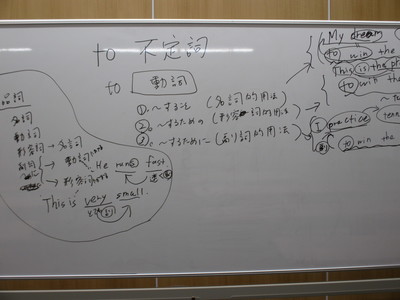 to 不定詞
to 動詞
①. ～すること (名詞的用法)
②. ～するための (形容詞的用法)
③. ～するために (副詞的用法)
My dream
to win the
This is the
to win the
I practice
to win the
品詞
名詞
動詞
形容詞 → 名詞
副詞 → 動詞
He runs fast
→ 形容詞
This is very small.